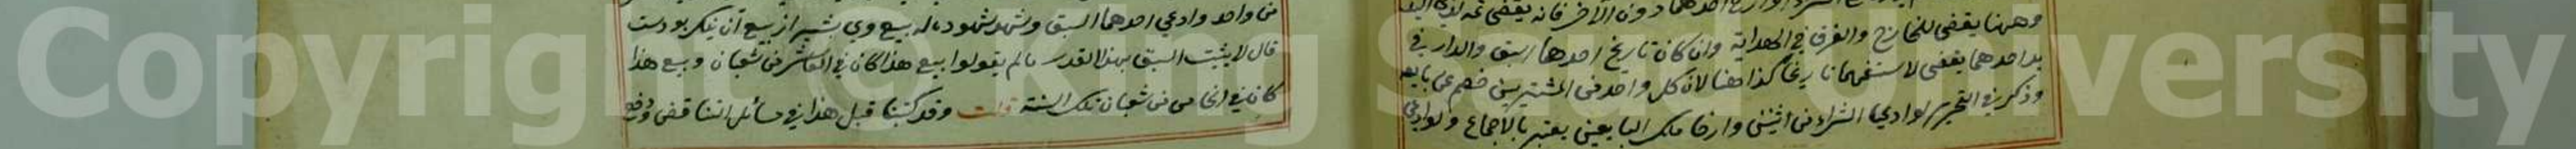 احدهما دون الآخر فانه يقضى
وههنا يقضى للخارج والفرق في الهداية وان كان تاريخ احدهما اسبق والدار في
يد احدهما يقضى لاسبقهما تاريخا كذا هنا لان كل واحد من المشتريين خصم عن بايعه
وذكر في التجريد لو ادعيا الشراء من اثنين وارخا ملك البايعين يعتبر بالاجماع ولو ادعى
من واحد وادعى احدهما السبق وشهد شهوده انه بيع وى بشير از بيع آن يكر بودست
قال لا يثبت السبق بهذا القدر ما لم يقولوا بيع هذا كان في العاشر من شعبان وبيع هذا
كان في الخامس من شعبان تلك السنة قلت وقد كتبنا قبل هذا في مسائل التناقض ودفع
Copyright © King Saud University